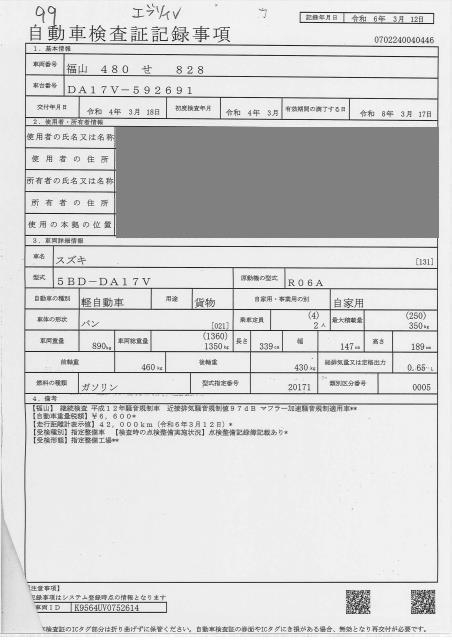 99 エブリイV
記録年月日 令和 6年 3月 12日
自動車検査証記録事項
0702240040446
1. 基本情報
車両番号 福山 480 せ 828
車台番号 DA17V-592691
交付年月日 令和 4年 3月 18日 初度検査年月 令和 4年 3月 有効期間の満了する日 令和 8年 3月 17日
2. 使用者・所有者情報
使用者の氏名又は名称
使用者の住所
所有者の氏名又は名称
所有者の住所
使用の本拠の位置
3. 車両詳細情報
車名 スズキ [131]
型式 5BD-DA17V 原動機の型式 R06A
自動車の種別 軽自動車 用途 貨物 自家用・事業用の別 自家用
車体の形状 バン [021] 乗車定員 (4) 2人 最大積載量 (250) 350kg
車両重量 890kg 車両総重量 (1360) 1350kg 長さ 339cm 幅 147cm 高さ 189cm
前軸重 460kg 後軸重 430kg 総排気量又は定格出力 0.65L
燃料の種類 ガソリン 型式指定番号 20171 類別区分番号 0005
4. 備考
【福山】 継続検査 平成12年騒音規制車 近接排気騒音規制値97dB マフラー加速騒音規制適用車**
【自動車重量税額】¥6,600*
【走行距離計表示値】42,000km(令和6年3月12日)*
【受検種別】指定整備車 【検査時の点検整備実施状況】点検整備記録簿記載あり*
【受検形態】指定整備工場**
注意事項】
記録事項はシステム登録時点の情報となります
車両ID K9564UV0752614
検査証のICタグ部分は折り曲げずに保管ください。自動車検査証の券面やICタグにき損がある場合、無効となり再交付が必要です。